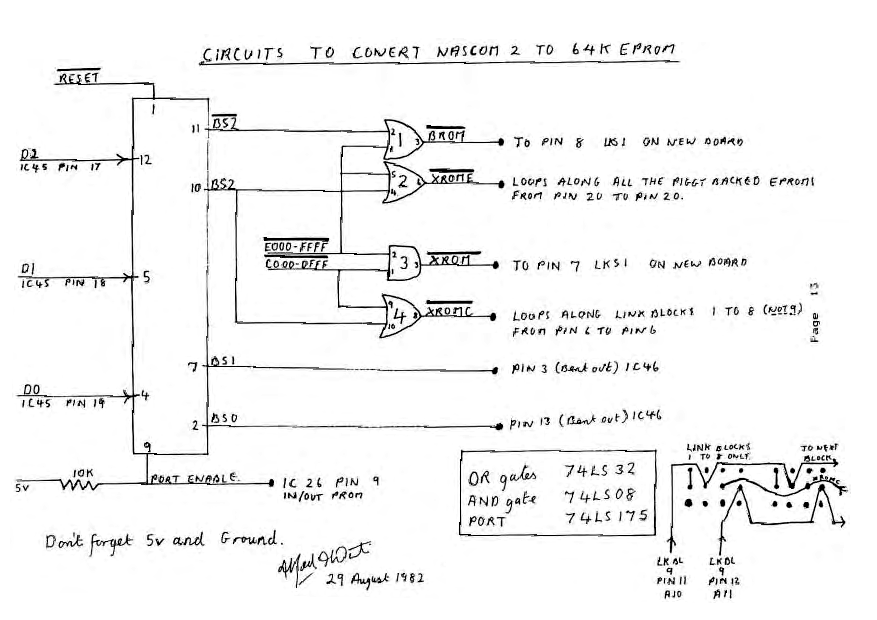 CIRCUITS TO CONVERT NASCOM 2 TO 64K EPROM
RESET
1
11 BS2
D2
IC45 PIN 17
12
10 BS2
2 1 3 BROM
TO PIN 8 LKS1 ON NEW BOARD
5 4 2 6 XROME
LOOPS ALONG ALL THE PIGGY BACKED EPROMS
FROM PIN 20 TO PIN 20.
E000-FFFF
C000-DFFF
2 1 3 3 XROM
TO PIN 7 LKS1 ON NEW BOARD
D1
IC45 PIN 18
5
9 10 4 8 XROMC
LOOPS ALONG LINK BLOCKS 1 TO 8 (NOT 9)
FROM PIN 6 TO PIN 6
Page 13
7 BS1
PIN 3 (Bent out) IC46
D0
IC45 PIN 19
4
2 BS0
PIN 13 (Bent out) IC46
9
10K
5V
PORT ENABLE.
IC 26 PIN 9
IN/OUT PROM
OR gates 74LS32
AND gate 74LS08
PORT 74LS175
LINK BLOCKS
1 TO 8 ONLY.
TO NEXT
BLOCK
XROMC
LKBL
9
PIN 11
A10
LKBL
9
PIN 12
A11
Don't forget 5v and Ground.
29 August 1982